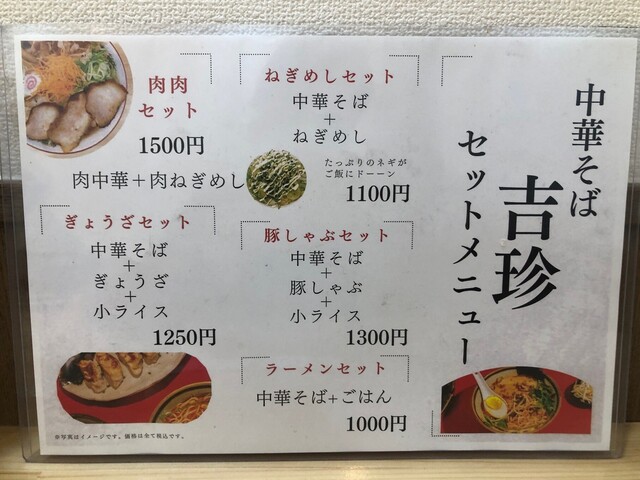 中華そば
吉珍
セットメニュー
ねぎめしセット
中華そば
+
ねぎめし
たっぷりのネギが
ご飯にドーーン
1100円
肉肉
セット
1500円
肉中華+肉ねぎめし
豚しゃぶセット
中華そば
+
豚しゃぶ
+
小ライス
1300円
ぎょうざセット
中華そば
+
ぎょうざ
+
小ライス
1250円
ラーメンセット
中華そば+ごはん
1000円
※写真はイメージです。価格は全て税込です。